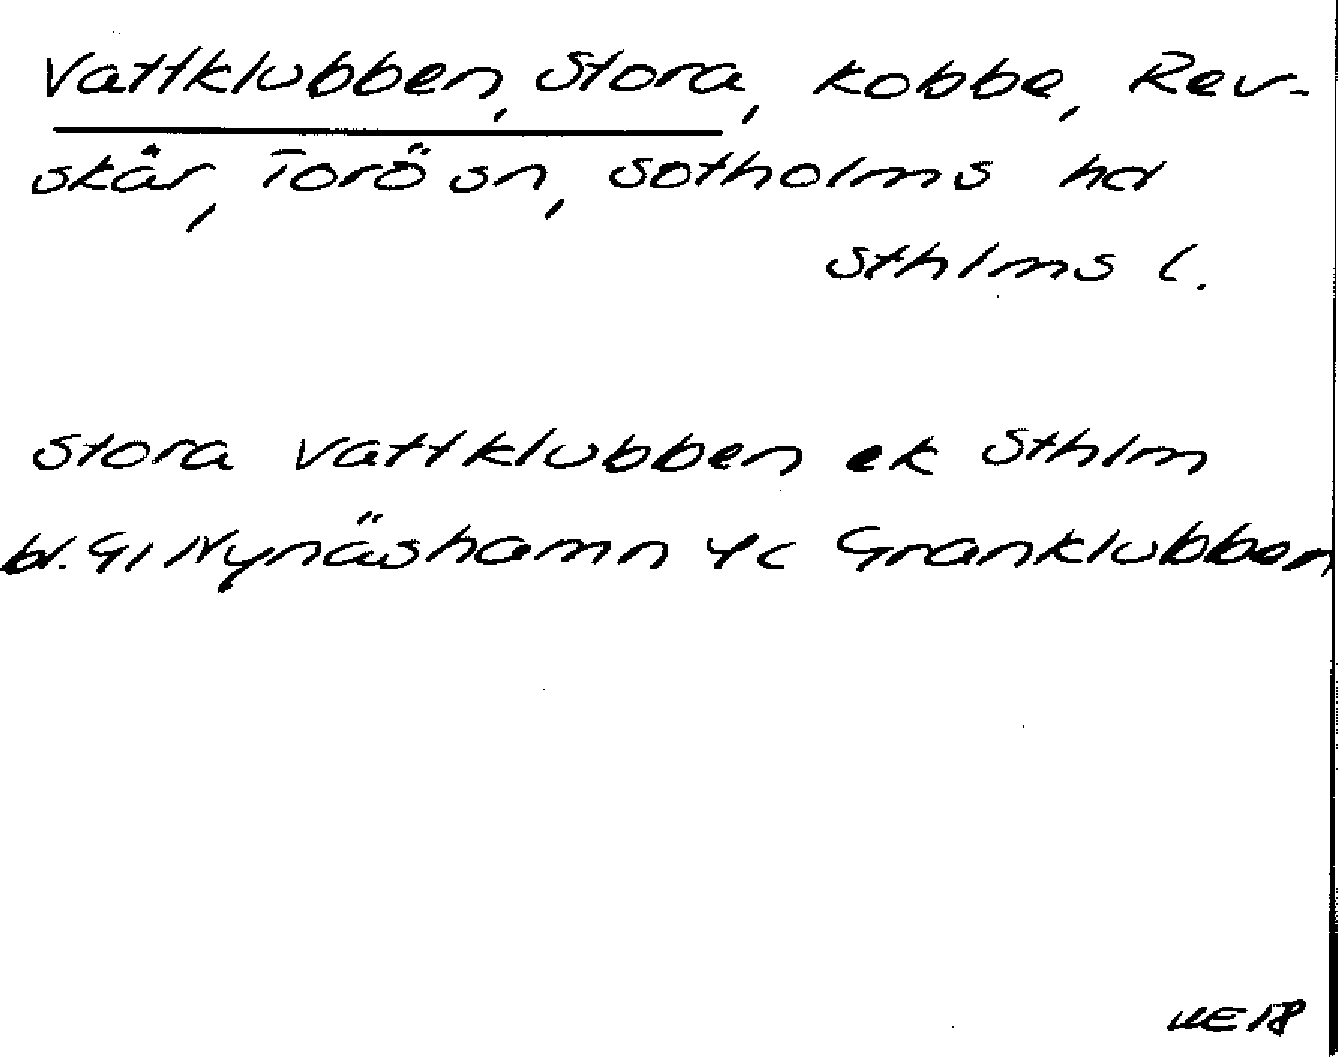 Vattklubben, Stora, kobbe, Rev-
skär, Torö sn, Sotholms hd
Sthlms l.
Stora Vattklubben ek Sthlm
bl. 9I Nynäshamn 4c Granklubben